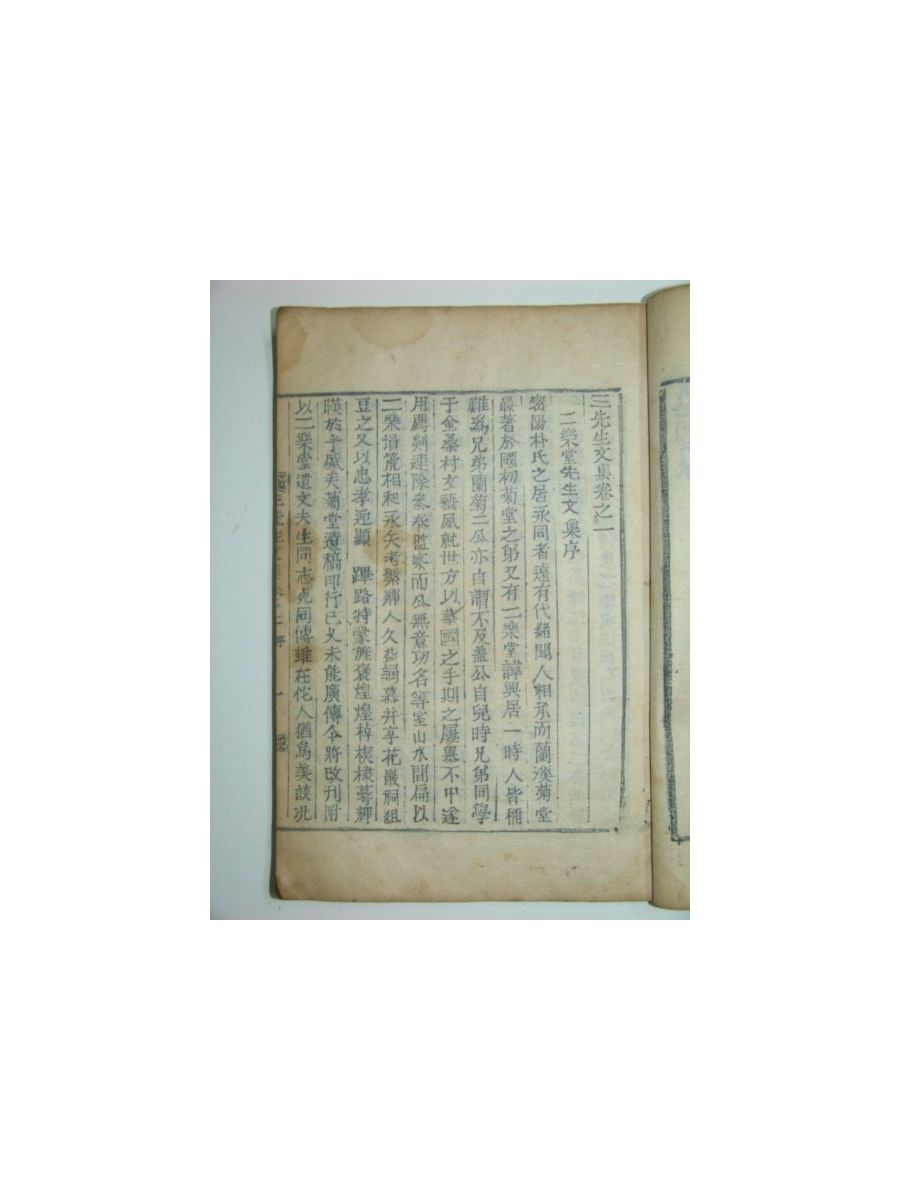 三先生文集卷之二
二樂堂先生文集序
密陽朴氏之居永同者遠有代緒聞人相承而蘭溪菊堂
最著於國初菊堂之弟又有二樂堂諱興居一時人皆稱
難爲兄弟蘭菊二公亦自謂不及盖公自兒時兄弟同學
于金桑村文藝夙就世方以華國之手期之屢擧不中遂
用薦剡連除參奉監察而公無意功名等室山水間扁以
二樂壎箎相和永矢考槃鄕人久益謌慕并享花巖祠俎
豆之又以忠孝迎顯 蹕路特蒙旌褒煌煌棹楔棣萼輝
暎於乎盛矣菊堂遺稿印行已久未能廣傳今將改刊附
以二樂堂遺文夫生同志死同傳雖在佗人猶爲美談况